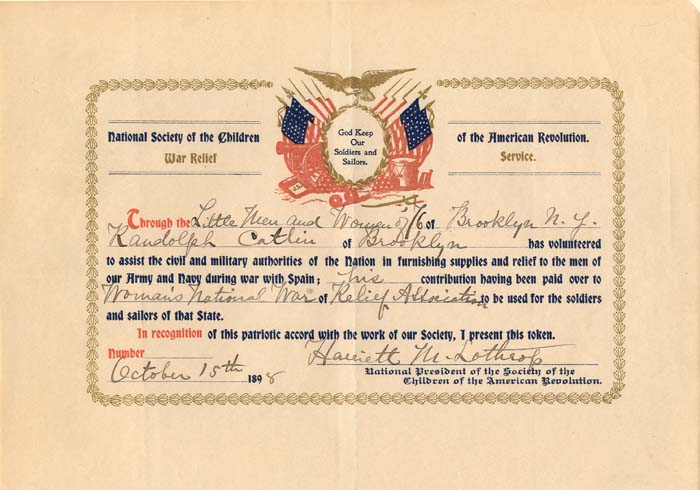 God Keep
Our
Soldiers and
Sailors.
National Society of the Children of the American Revolution.
War Relief Service.
Through the Little Men and Women of '76 of Brooklyn N.Y.
Randolph Catlin of Brooklyn has volunteered
to assist the civil and military authorities of the Nation in furnishing supplies and relief to the men of
our Army and Navy during war with Spain; his contribution having been paid over to
Woman's National War of Relief Association to be used for the soldiers
and sailors of that State.
In recognition of this patriotic accord with the work of our Society, I present this token.
Number
Harriett M. Lothrop
October 15th 1898
National President of the Society of the
Children of the American Revolution.